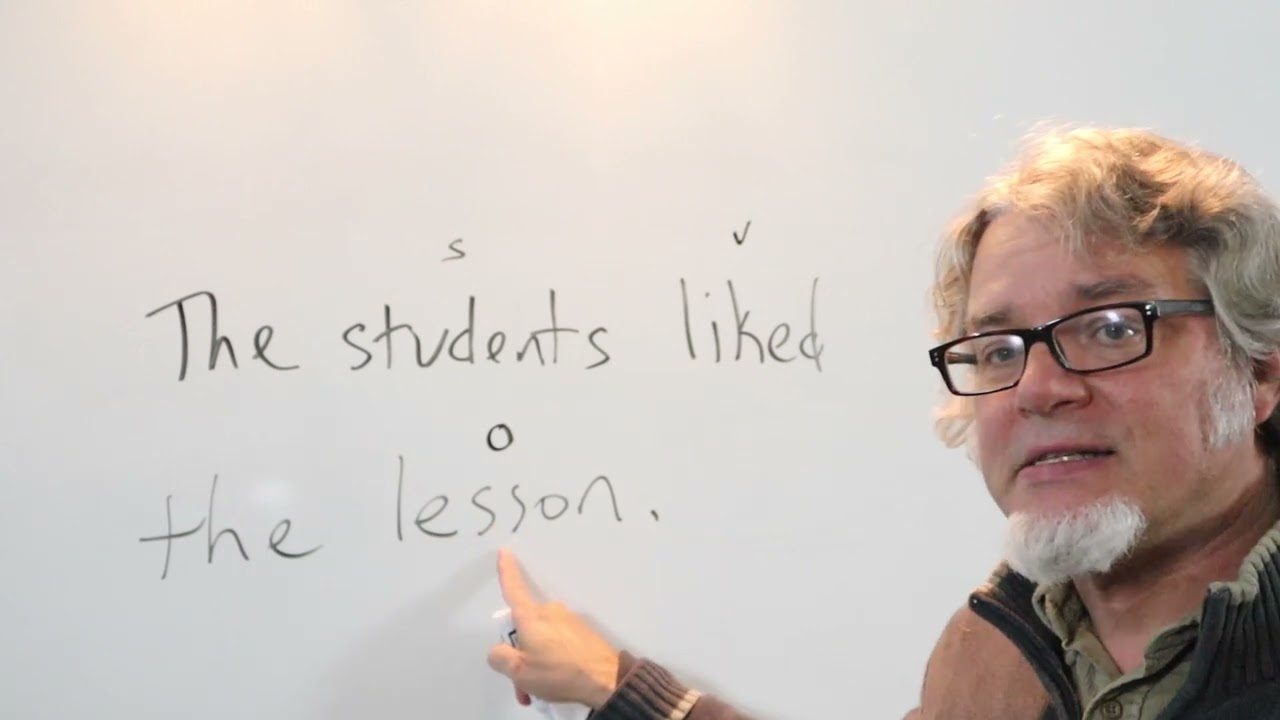 s v
The students liked
o
the lesson.